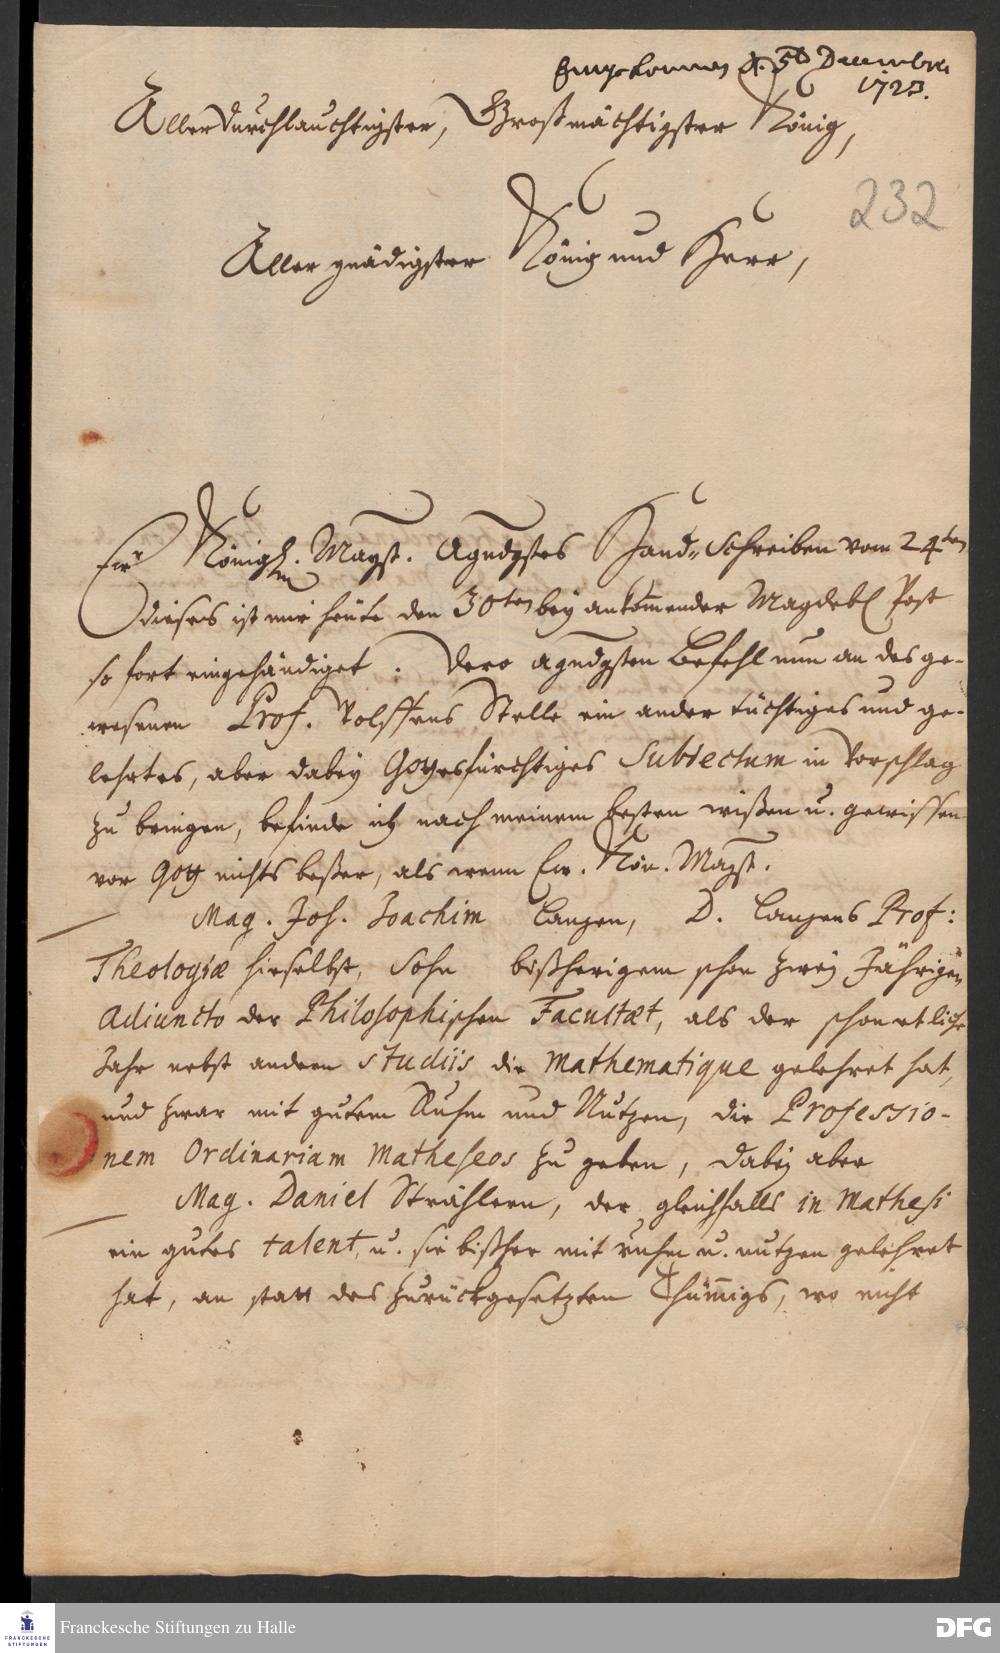 Eingekommen d. 5t Decembris
1723.
Allerdurchlauchtigster, Großmächtigster König,
232
Aller gnädigster König und Herr,
Ew Königl. Mayst. Agndgstes Hand-Schreiben vom 24ten
dieses ist mir heute den 30ten bey ankommender Magdebl Post
so fort eingehändiget. Dero agndgsten Befehl nun an des ge-
wesenen Prof. Wolffens Stelle ein ander tüchtiges und ge-
lehrtes, aber dabey Gottesfürchtiges Subiectum in Vorschlag
zu bringen, befinde ich nach meinem besten wißen u. gewissen
vor Gott nichts beßer, als wenn Ew. Kön. Mayst.
Mag. Joh. Joachim Langen, D. Langens Prof:
Theologiæ hieselbst, Sohn bißherigem schon zwey Jährigen
Adiuncto der Philosophischen Facultæt, als der schon etliche
Jahr nebst andern studiis die Mathematique gelehret hat,
und zwar mit gutem Ruhm und Nutzen, die Professio-
nem Ordinariam Matheseos zu geben, dabey aber
Mag. Daniel Strählern, der gleichfalls in Mathesi
ein gutes talent, u. sie bißher mit ruhm u. nutzen gelehret
hat, an statt des zurückgesetzten Thümmigs, wo nicht
FRANCKESCHE STIFTUNGEN
Franckesche Stiftungen zu Halle
DFG